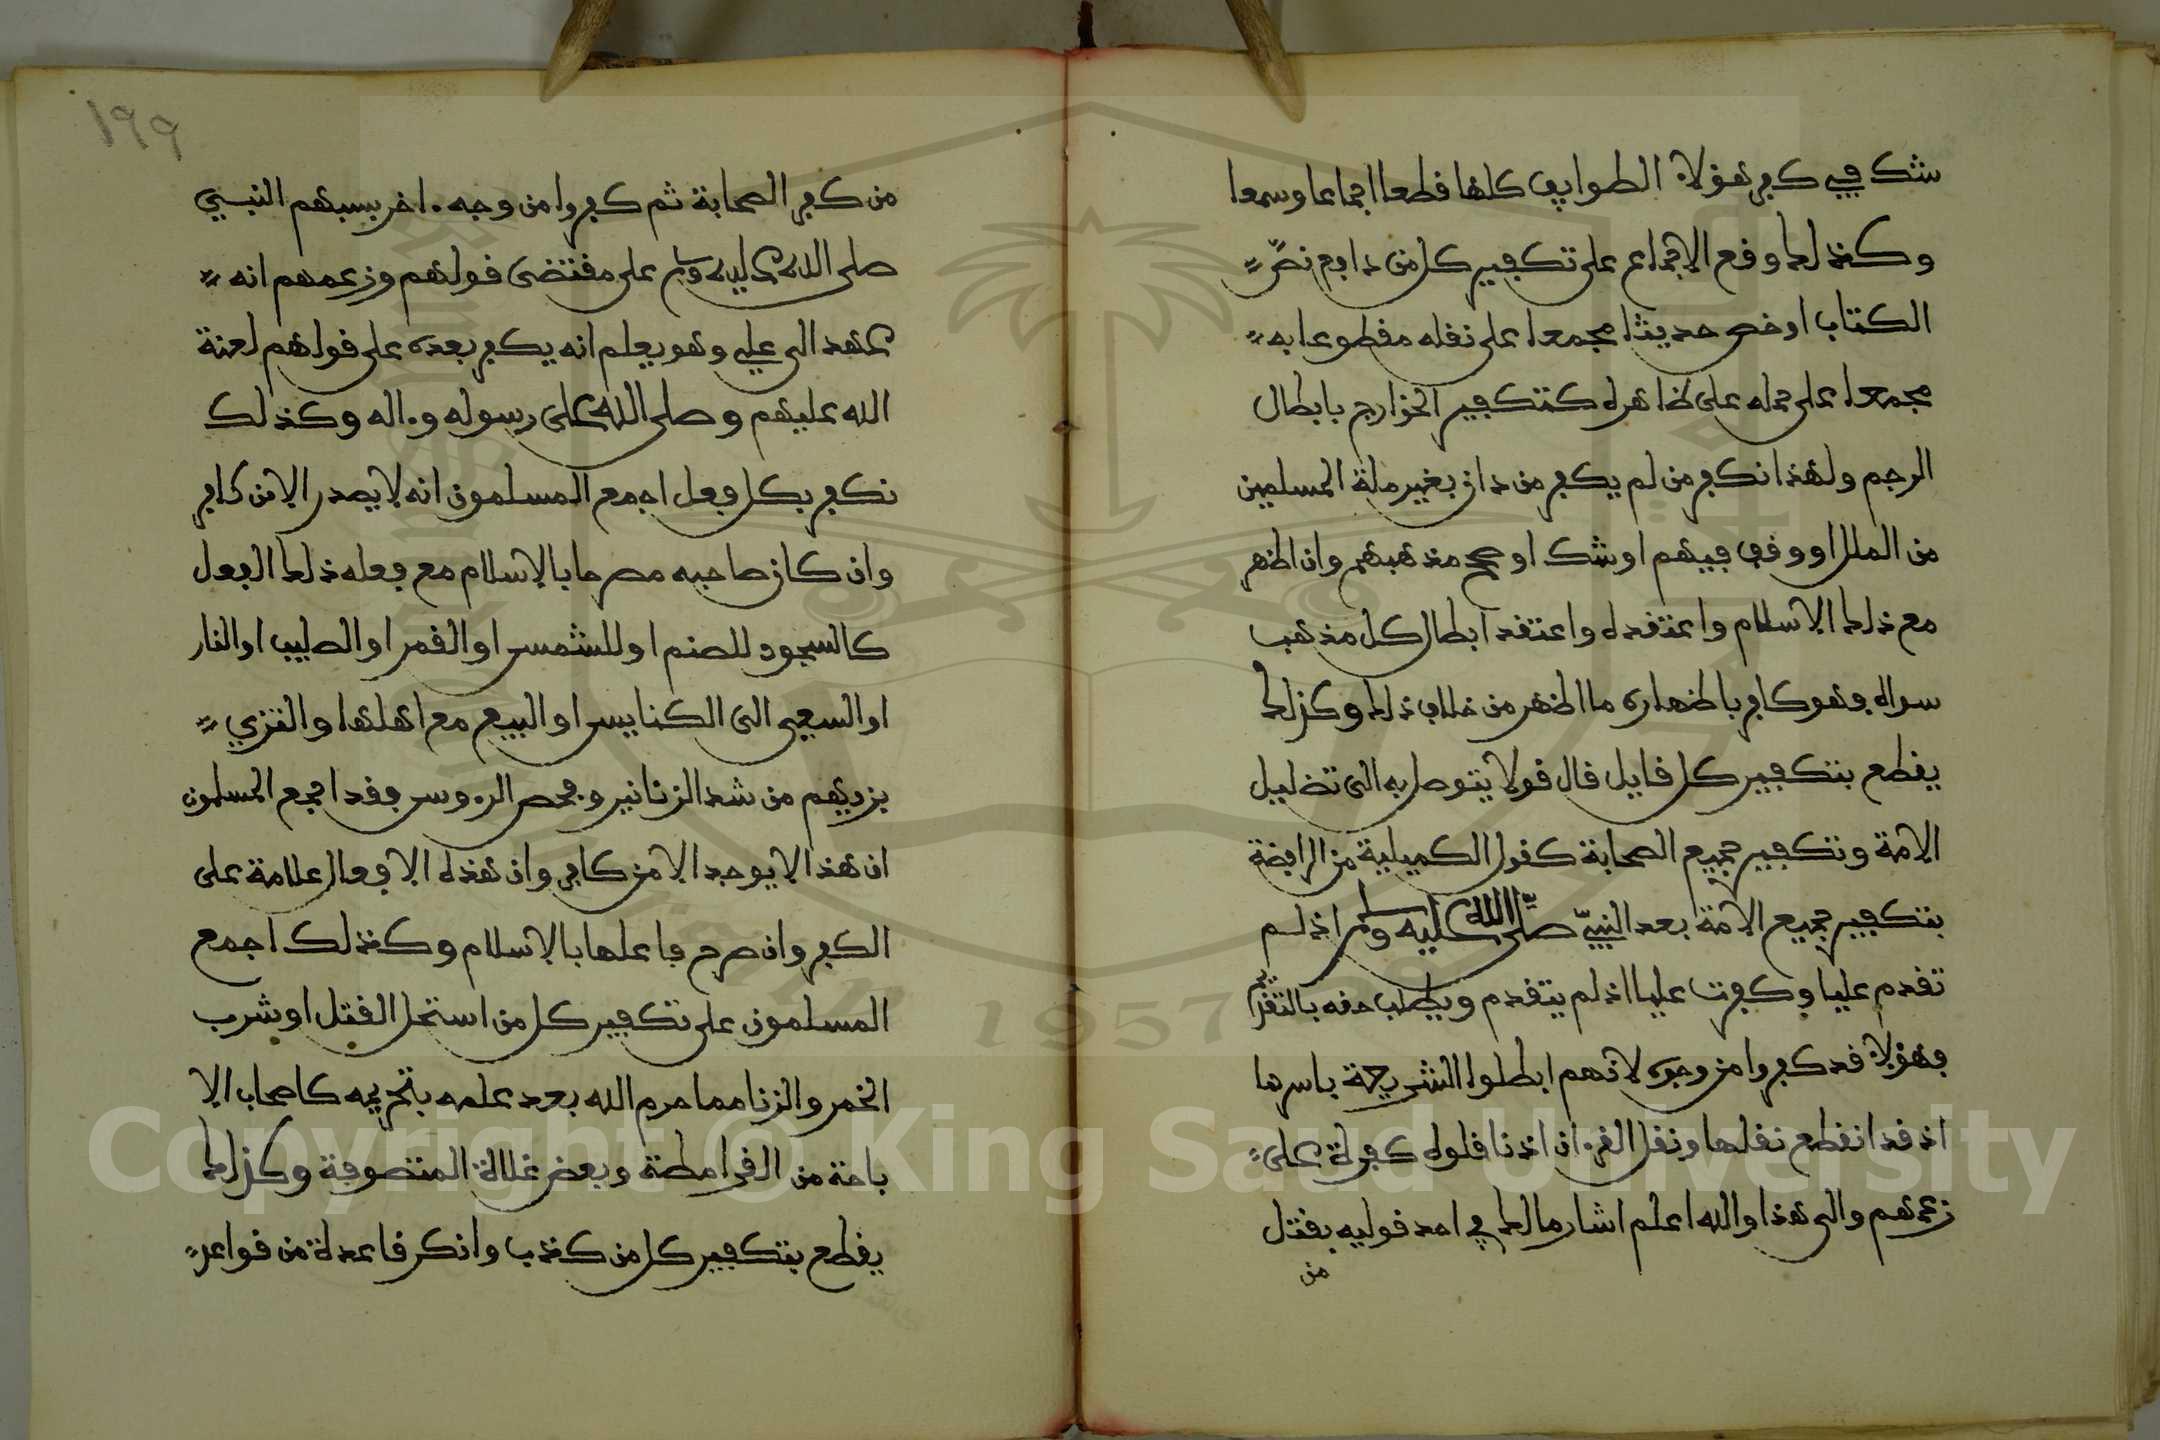 شك في كفر هؤلاء الطوايف كلها قطعا اجماعا وسمعا
وكذلك وقع الاجماع على تكفير كل من دافع نصّ
الكتاب او خص حديثا مجمعا على نقله مقطوعا به
مجمعا على حمله على ظاهره كتكفير الخوارج بابطال
الرجم ولهذا نكفر من لم يكفر من دان بغير ملة المسلمين
من الملل او وقف فيهم او شك او صحح مذهبهم وان اظهر
مع ذلك الاسلام واعتقده واعتقد ابطال كل مذهب
سواه فهو كافر باظهاره ما اظهر من خلاف ذلك وكذلك
يقطع بتكفير كل قايل قال قولا يتوصل به الى تضليل
الامة وتكفير جميع الصحابة كقول الكميلية من الرافضة
بتكفير جميع الامة بعد النبيّ صلى الله عليه وسلم اذ لم
تقدم عليا وكفرت عليا اذ لم يتقدم ويطلب حقه بالتقديم
فهؤلاء قد كفروا من وجوه لانهم ابطلوا الشريعة باسرها
اذ قد انقطع نقلها ونقل القرءان اذ ناقلوه كفرة على
زعمهم والى هذا والله اعلم اشار مالك في احد قوليه بقتل
من
١٩٩
من كفر الصحابة ثم كفروا من وجه ءاخر بسبهم النبي
صلى الله عليه وسلم على مقتضى قولهم وزعمهم انه
عهد الى علي وهو يعلم انه يكفر بعده على قولهم لعنة
الله عليهم وصلى الله على رسوله وءاله وكذلك
نكفر بكل فعل اجمع المسلمون انه لا يصدر الا من كافر
وان كان صاحبه مصرحا بالاسلام مع فعله ذلك الفعل
كالسجود للصنم او للشمس او القمر او الصليب او النار
او السعي الى الكنايس او البيع مع اهلها والتزي
بزيهم من شد الزنانير وفحص الرءوس فقد اجمع المسلمون
ان هذا لا يوجد الا من كافر وان هذه الافعال علامة على
الكفر وان صرح فاعلها بالاسلام وكذلك اجمع
المسلمون على تكفير كل من استحل القتل او شرب
الخمر والزنا مما حرم الله بعد علمه بتحريمه كاصحاب الا
باحة من القرامطة وبعض غلاة المتصوفة وكذلك
يقطع بتكفير كل من كذب وانكر قاعدة من قواعد
Copyright © King Saud University
1957